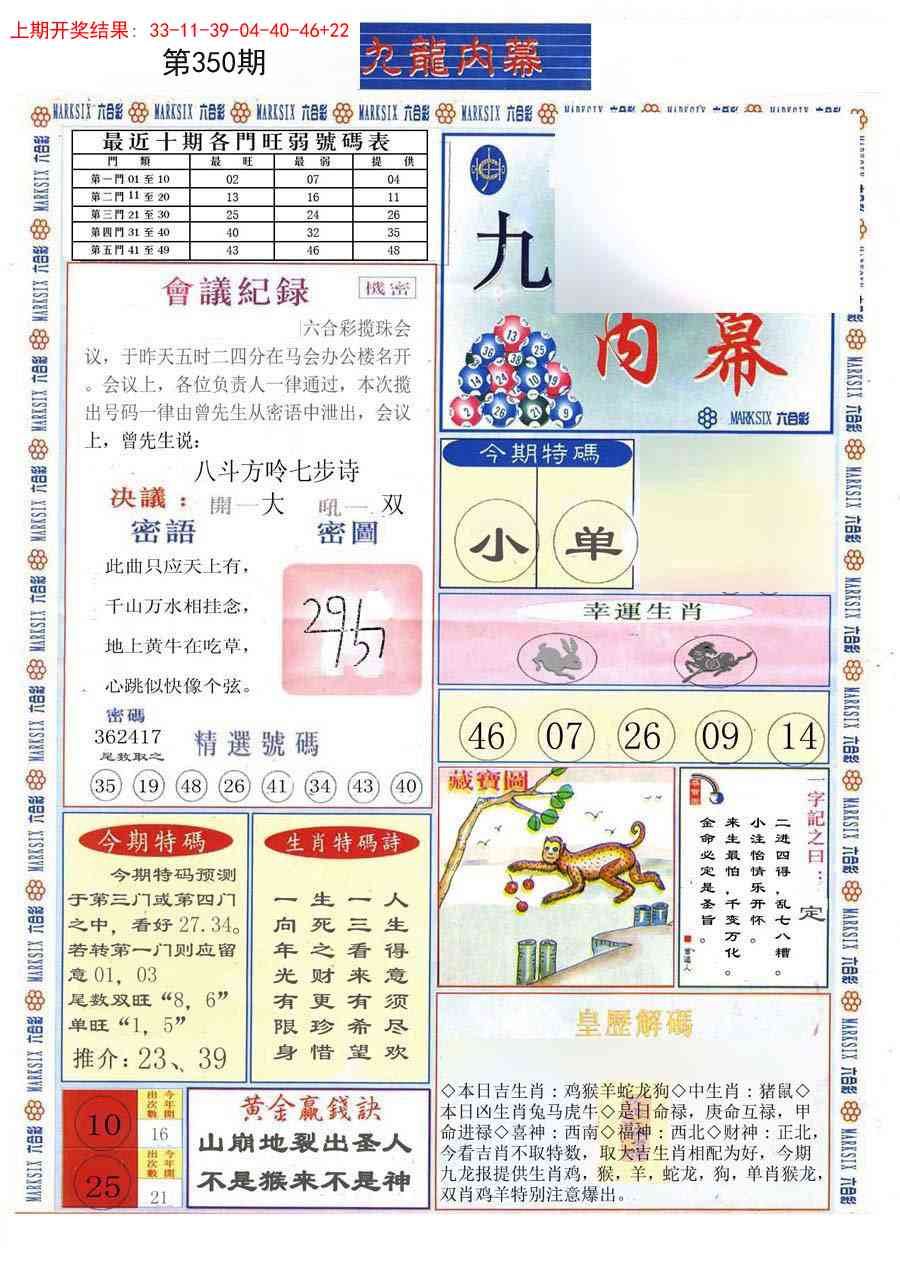 上期开奖结果: 33-11-39-04-40-46+22
第350期
九龍內幕
MARKSIX 六合彩 MARKSIX 六合彩 MARKSIX 六合彩 MARKSIX 六合彩 MARKSIX 六合彩
最近十期各門旺弱號碼表
門 類 最 旺 最 弱 提 供
第一門 01 至 10 02 07 04
第二門 11 至 20 13 16 11
第三門 21 至 30 25 24 26
第四門 31 至 40 40 32 35
第五門 41 至 49 43 46 48
會議紀録
機密
六合彩揽珠会
议，于昨天五时二四分在马会办公楼名开
。会议上，各位负责人一律通过，本次揽
出号码一律由曾先生从密语中泄出，会议
上，曾先生说:
八斗方呤七步诗
决議： 開一大 吼一 双
密語 密圖
此曲只应天上有，
千山万水相挂念，
地上黄牛在吃草，
心跳似快像个弦。
密碼
362417
尾数取之
精選號碼
35 19 48 26 41 34 43 40
九
内幕
13
36 38 25
14 24 10 19
2 26 21 9
MARKSIX 六合彩
今期特碼
小 单
幸運生肖
46 07 26 09 14
藏寶圖
一字記之曰：定
二进四得，乱七八糟。
小注怡情乐开怀。
来生最怕，千变万化。
金命必定是圣旨。
今期特碼
今期特码预测
于第三门或第四门
之中，看好 27.34。
若转第一门则应留
意 01，03
尾数双旺“8，6”
单旺“1，5”
推介:23、39
生肖特碼詩
一生一人
向死三生
年之看得
光财来意
有更有须
限珍希尽
身惜望欢
10
今年開出次數
16
25
今年開出次數
21
黄金赢錢訣
山崩地裂出圣人
不是猴来不是神
皇歷解碼
◇本日吉生肖：鸡猴羊蛇龙狗◇中生肖：猪鼠◇
本日凶生肖兔马虎牛◇是日命禄，庚命互禄，甲
命进禄◇喜神：西南◇福神：西北◇财神：正北，
今看吉肖不取特数，取大吉生肖相配为好，今期
九龙报提供生肖鸡，猴，羊，蛇龙，狗，单肖猴龙，
双肖鸡羊特别注意爆出。